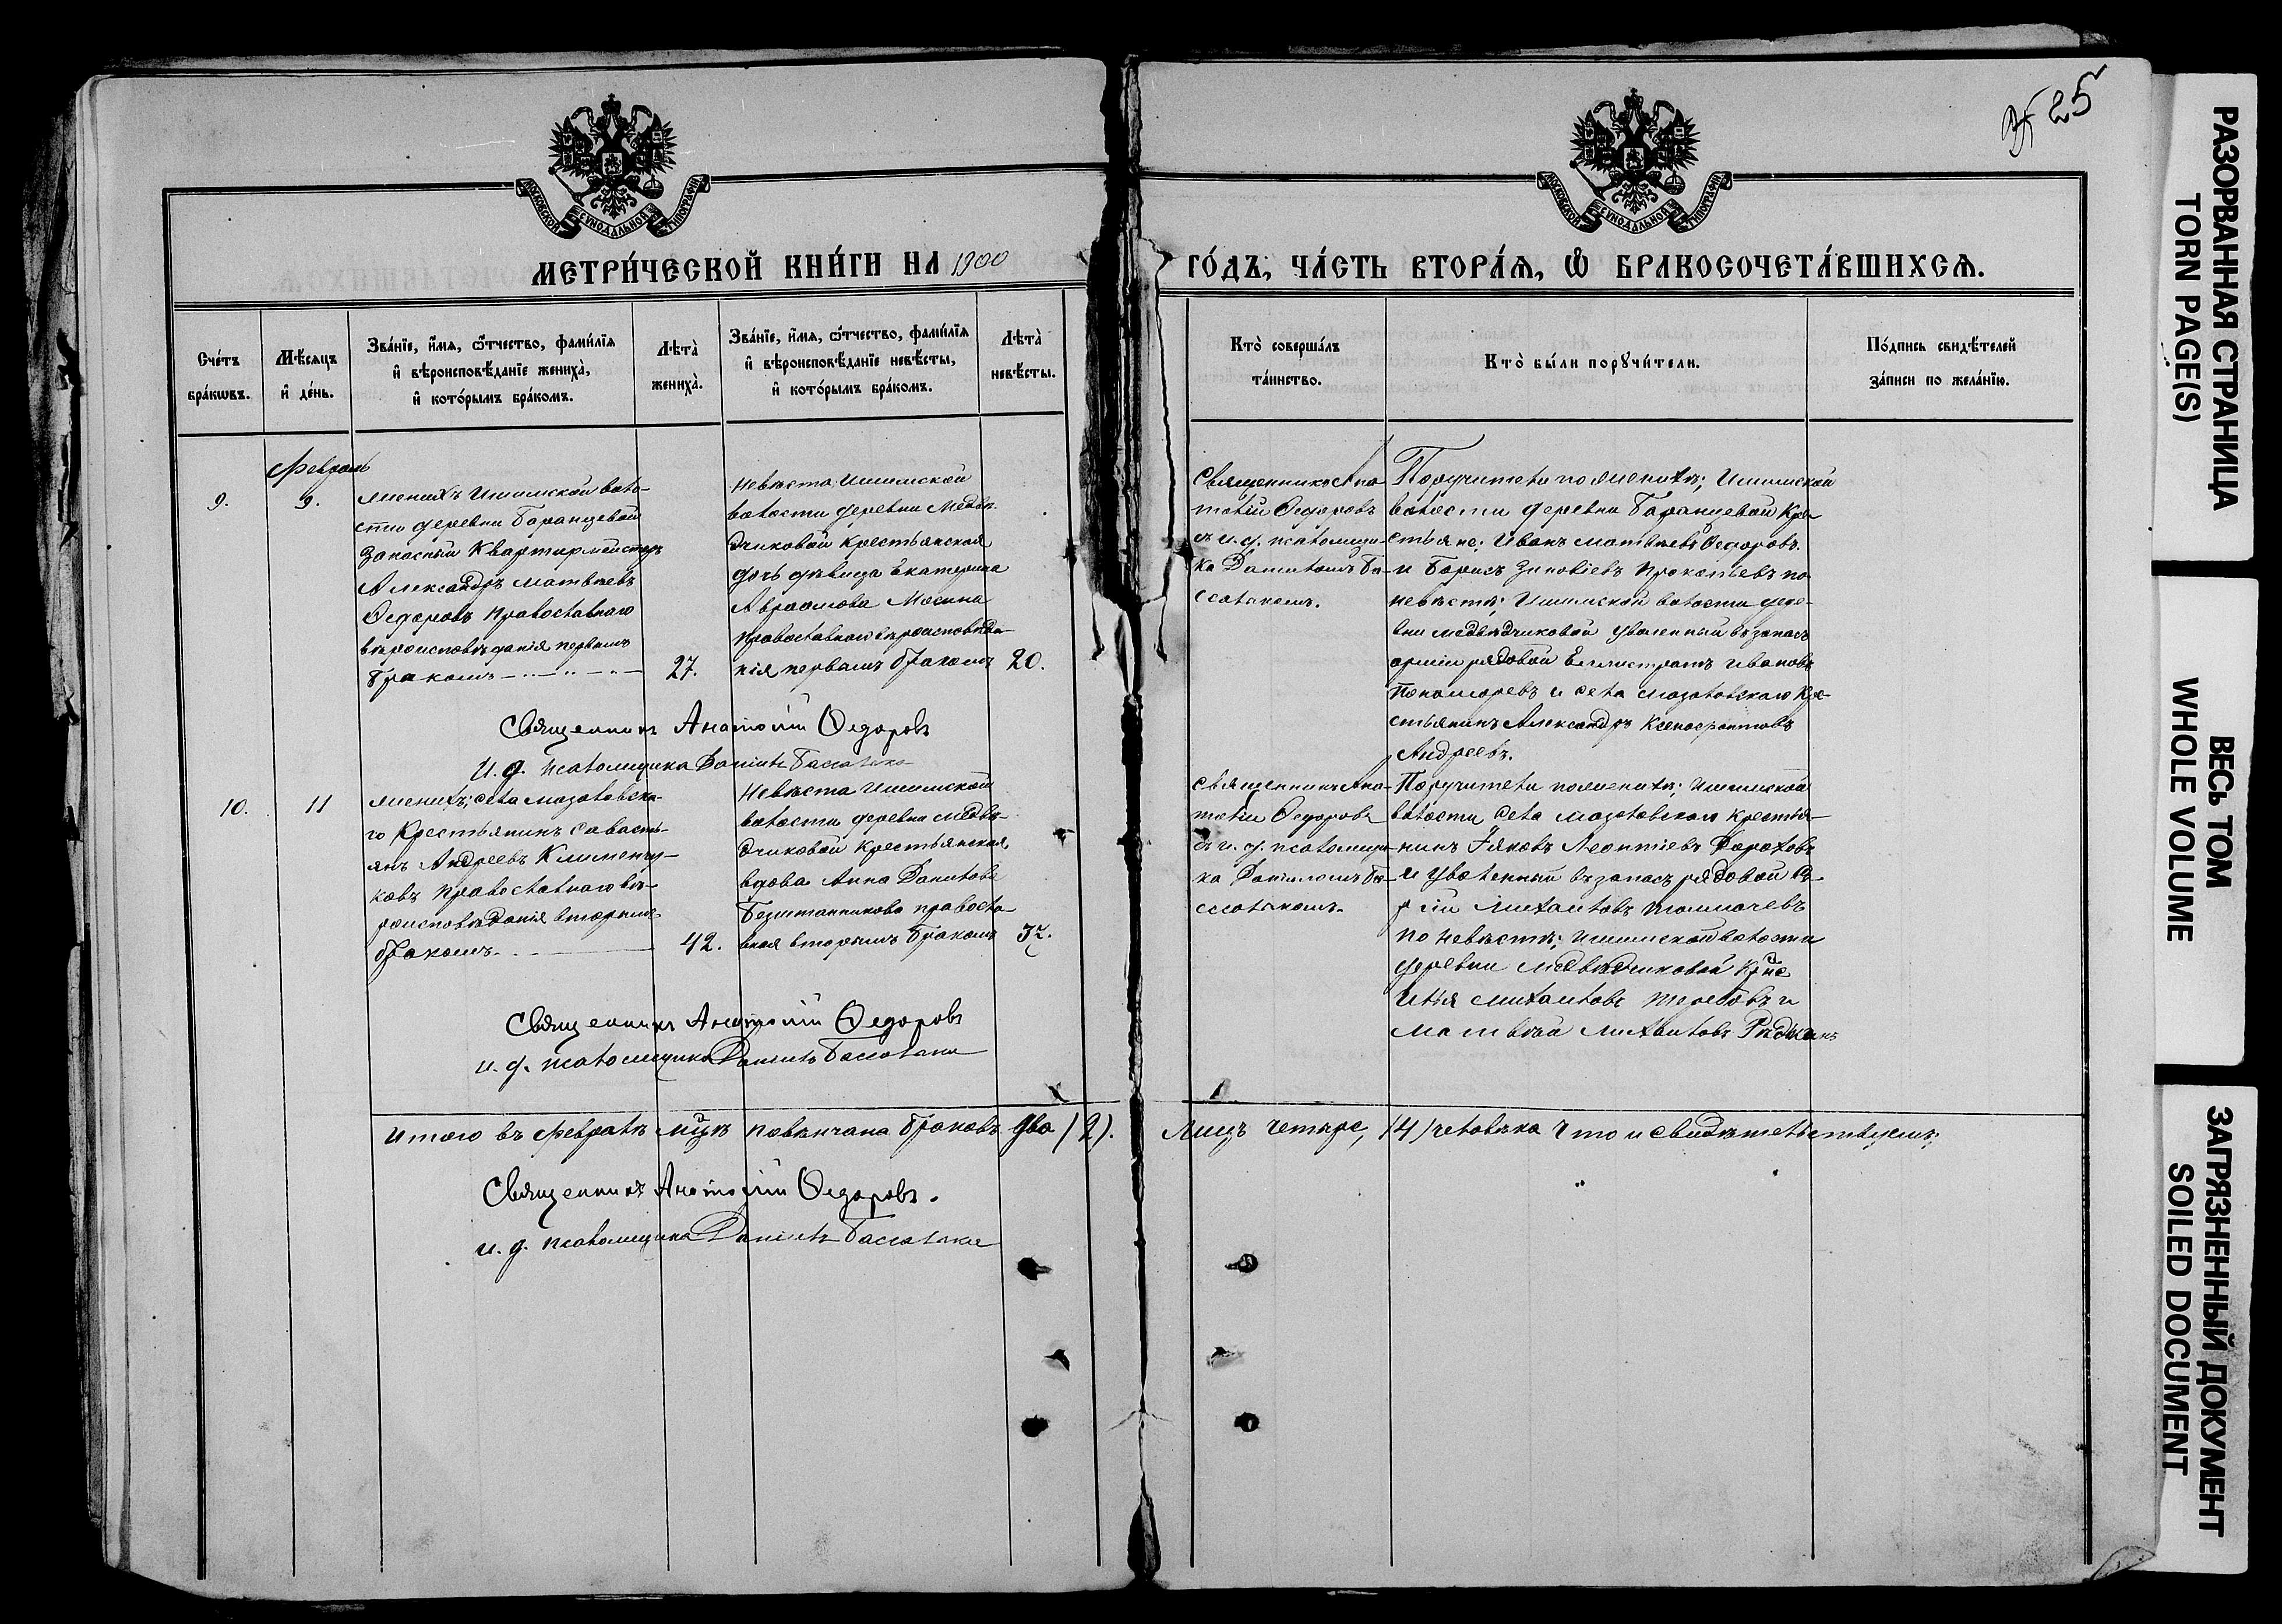 25
МОСКОВСКОЙ СѴНОДАЛЬНОЙ ТИПОГРАФІИ
МОСКОВСКОЙ СѴНОДАЛЬНОЙ ТИПОГРАФІИ
МЕТРИ́ЧЕСКОЙ КНИ́ГИ НА 1900 ГО́ДЪ, ЧА́СТЬ ВТОРА́Я, Ѽ БРАКОСОЧЕТА́ВШИХСЯ.
Сче́тъ бра́кѡвъ.
Мѣ́сяцъ и де́нь.
Зва́нїе, и́мя, ѻ́тчество, фами́лїя и вѣроисповѣ́данїе жениха̀, и кото́рымъ бра́комъ.
Лѣта̀ жениха̀.
Зва́нїе, и́мя, ѻ́тчество, фами́лїя и вѣроисповѣ́данїе невѣ́сты, и кото́рымъ бра́комъ.
Лѣта̀ невѣ́сты.
Кто̀ соверша́лъ та́инство.
Кто̀ бы́ли порꙋчи́тели.
По́дпись свидѣ́телей за́писи по жела́нїю.
Февраль
9.
9.
женихъ Ишимской воло-
сти деревни Баранцевой
запасный Квартирмистръ
Александръ Матвѣевъ
Ѳедоровъ православнаго
вѣроисповѣданія первымъ
бракомъ
27.
Невѣста Ишимской
волости деревни Медвѣ-
дчиковой крестьянская
дочь дѣвица Екатерина
Авраамова Мосина
православнаго вѣроисповѣда-
нія первымъ бракомъ
20.
Священникъ Ана-
толій Ѳедоровъ
съ и. д. псаломщи-
ка Даниломъ Ба-
ссалакомъ.
Поручители по женихѣ; Ишимской
волости деревни Баранцевой Кре-
стьяне; Иванъ Матвѣевъ Ѳедоровъ
и Борисъ Зиновіевъ Прокопьевъ по
невѣстѣ; Ишимской волости дере-
вни Медвѣдчиковой уволенный въ запасъ
арміи рядовой Елистратъ Ивановъ
Пономаревъ и села Мазаловскаго Кре-
стьянинъ Александръ Ксенофонтовъ
Андреевъ.
Священникъ Анатолій Ѳедоровъ
И. д. псаломщика Даніилъ Бассалака
10.
11
женихъ; села Мазаловска-
го Крестьянинъ Савасть-
янъ Андреевъ Клименчу-
ковъ православнаго вѣ-
роисповѣданія вторымъ
бракомъ.
42.
Невѣста Ишимской
волости деревни Медвѣ-
дчиковой крестьянская
вдова Анна Данилова
правосла-
вная вторымъ бракомъ
37.
Священникъ Ана-
толій Ѳедоровъ
съ и. д. псаломщи-
ка Даніиломъ Ба-
ссалакомъ.
Поручители по женихѣ; Ишимской
волости села Мазаловскаго Крестья-
нинъ Іяковъ Леонтіевъ Дороховъ
и уволенный въ запасъ рядовой
Михаиловъ Толмачевъ
по невѣстѣ; Ишимской волости
деревни Медвѣдчиковой Крне
Илья Михаиловъ Теребовъ и
Матвѣй Михаиловъ
Священникъ Анатолій Ѳедоровъ
и. д. псаломщика Даніилъ Бассалака
Итого въ Февралѣ мцѣ повѣнчано браковъ два (2). Лицъ четыре, (4) человѣка что и свидѣтельствуемъ;
Священникъ Анатолій Ѳедоровъ.
и. д. псаломщика Даніилъ Бассалака
РАЗОРВАННАЯ СТРАНИЦА
TORN PAGE(S)
ВЕСЬ ТОМ
WHOLE VOLUME
ЗАГРЯЗНЕННЫЙ ДОКУМЕНТ
SOILED DOCUMENT